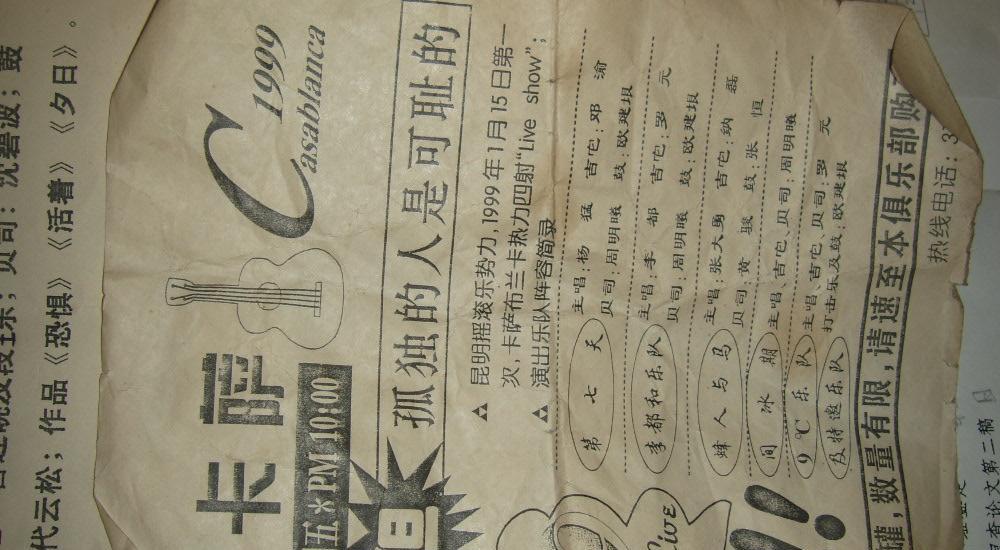 代云松；作品《恐惧》《活着》《夕日》。
1999
Casablanca
卡萨
五*PM 10:00
孤独的人是可耻的
△ 昆明摇滚乐势力,1999年1月15日第一
次,卡萨布兰卡热力四射“Live show”；
△ 演出乐队阵容简录
第七天 主唱:杨猛 吉它:邓渝
贝司:周明曦 鼓:欧建垠
李都和乐队 主唱:李都 吉它:罗元
贝司:周明曦 鼓:欧建垠
蜂人与马 主唱:张大勇 吉它:纳磊
贝司:黄骏 鼓:张恒
间冰期 主唱、吉它、贝司:周明曦
9℃乐队 主唱、吉它、贝司:罗元
及特邀乐队 打击乐及鼓:欧建垠
Live
!!
罐,数量有限,请速至本俱乐部购
热线电话: 3
论文第二稿